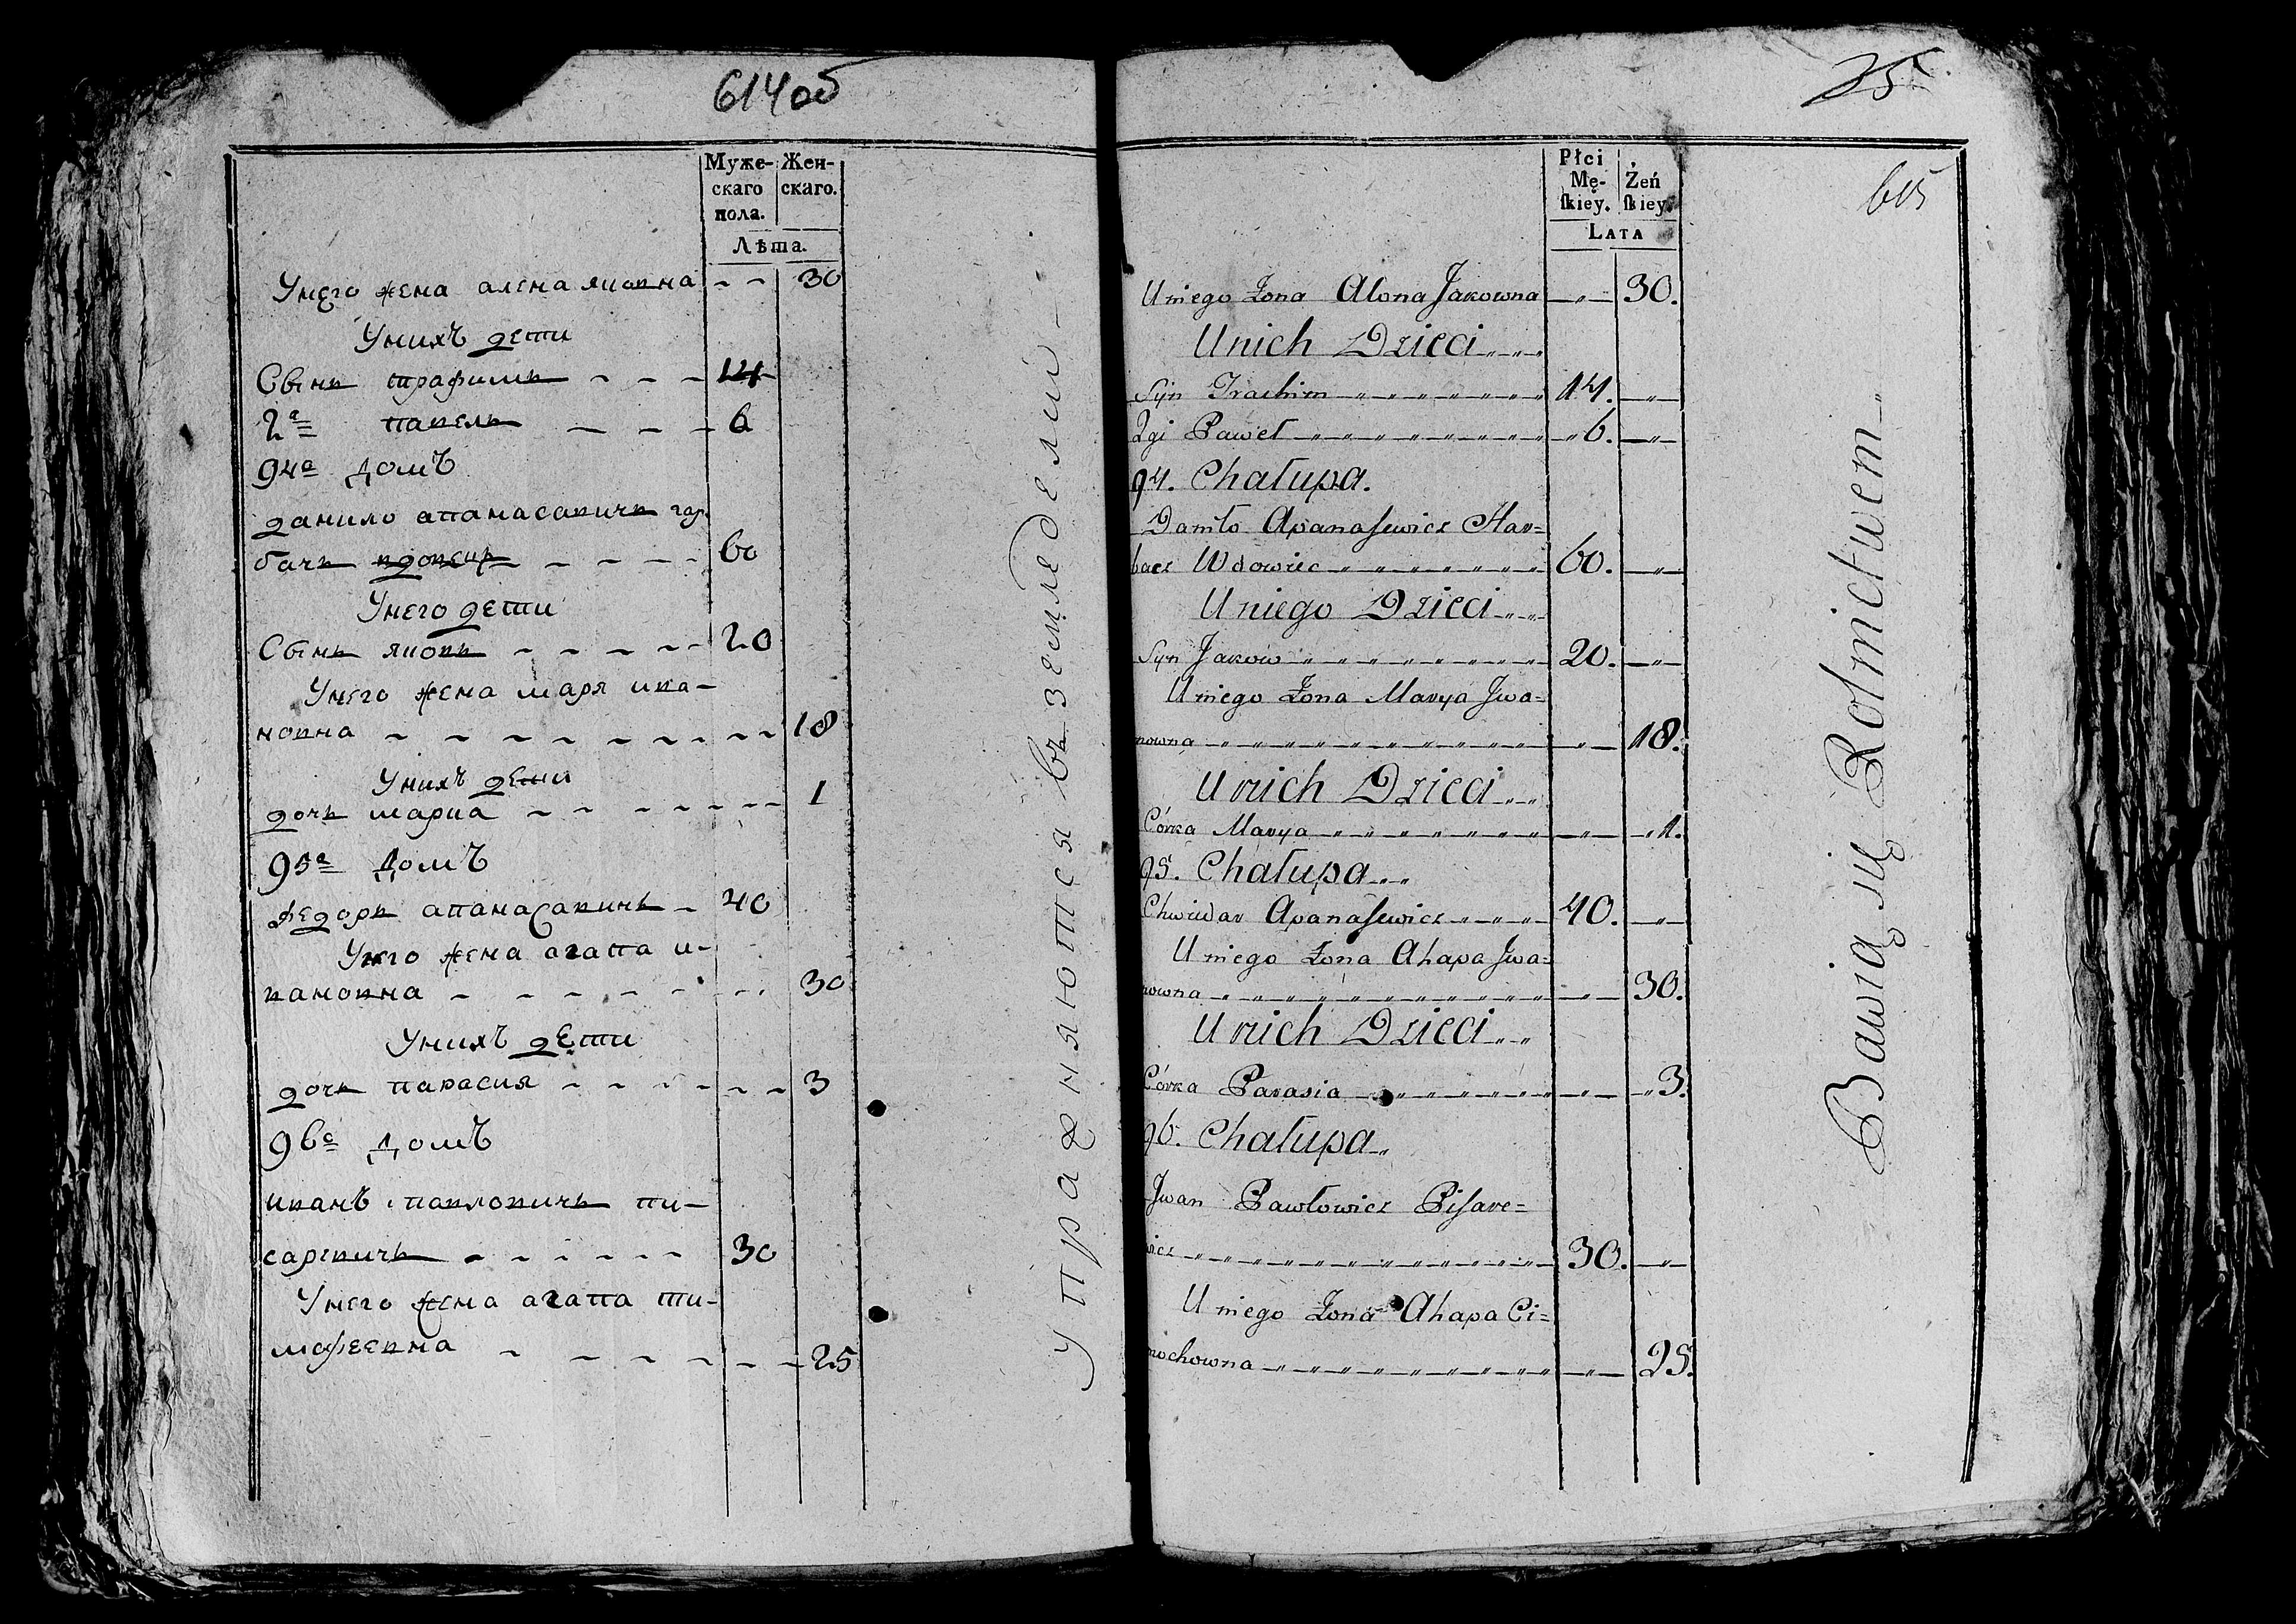 614об
Муже-
скаго
пола.
Жен-
скаго.
Лѣта.
Унего жена алена яковна - - 30
Унихъ дети
Сынъ трафимъ - - - 14
2й павелъ - - - 6
94й домъ
данило апанасавичъ гар-
бачъ вдовецъ - - - - - 60
Унего дети
Сынъ яковъ - - - - - 20
Унего жена маря ива-
новна - - - - - - - - - 18
Унихъ дети
дочь мариа - - - - - - 1
95й домъ
федоръ апанасавичъ - 40
Унего жена агапа и-
вановна - - - - - - - 30
Унихъ дети
дочь парасия - - - - - - 3
96й домъ
иванъ павловичъ пи-
саревичъ - - - - - 30
Унего жена агапа ти-
мофеевна - - - - - - 25
упражняются въ земледелии
25
615
Płci
Mę-
ſkiey.
Żeń
ſkiey.
LATA
Uniego Żona Alona Jakowna — „ — 30.
Unich Dzieci „ „
Syn Trachim „ „ „ „ „ „ 14. — „ —
2gi Paweł „ „ „ „ „ „ „ 6. — „ —
94. Chałupa.
Daniło Apanaſewicz Har=
bacz Wdowiec „ „ „ „ „ „ 60. — „ —
Uniego Dzieci „ „
Syn Jakow „ „ „ „ „ „ „ 20. — „ —
Uniego Żona Marya Jwa=
nowna „ „ „ „ „ „ „ „ — „ — 18.
Unich Dzieci „ „
Córka Marya „ „ „ „ „ „ — „ — „ 1.
95. Chałupa „ „
Chwiedar Apanaſewicz „ „ „ 40. — „ —
Uniego Żona Ahapa Jwa=
nowna „ „ „ „ „ „ „ „ — „ — 30.
Unich Dzieci „ „
Córka Parasia „ „ „ „ „ — „ — „ 3.
96. Chałupa „
Jwan Pawłowicz Piſare=
wicz „ „ „ „ „ „ „ „ „ 30. — „ —
Uniego Żona Ahapa Ci=
mochowna „ „ „ „ „ „ „ — „ — 25.
Bawią się Rolnictwem „